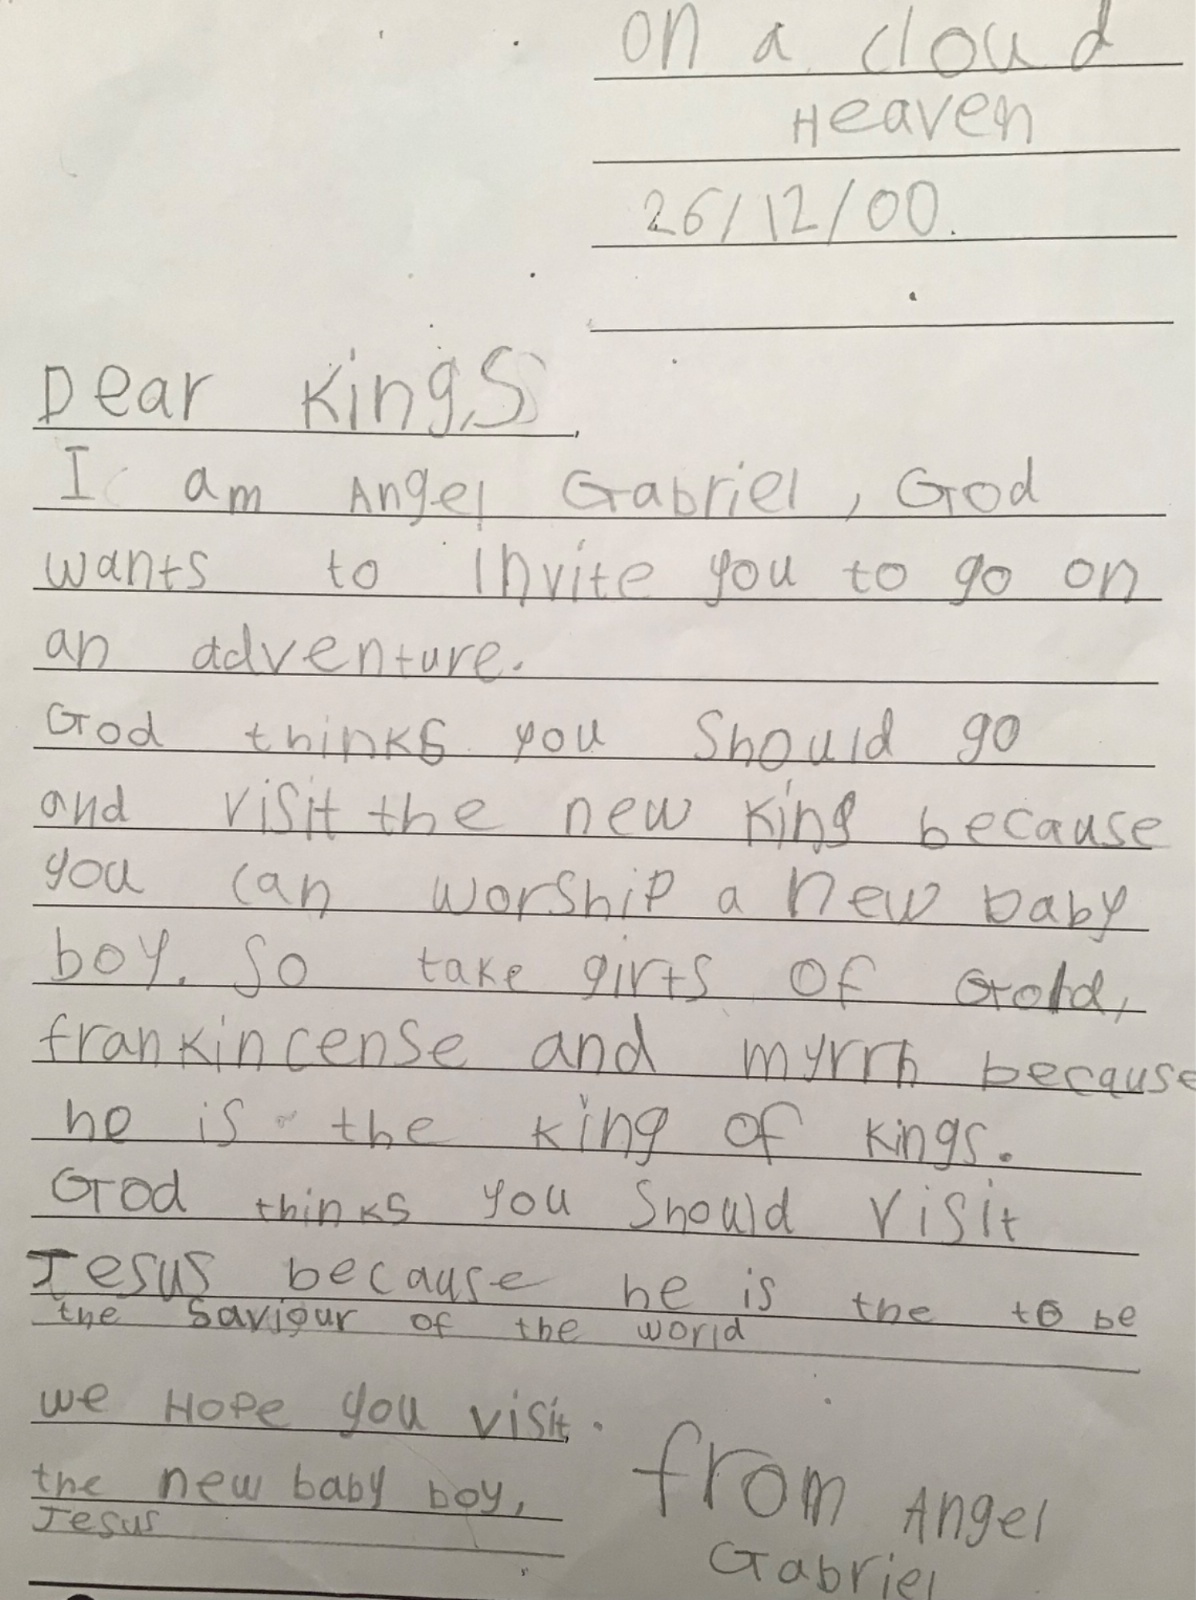 on a cloud
Heaven
26/12/00.
Dear Kings,
I am Angel Gabriel, God
wants to Invite you to go on
an adventure.
God thinks you Should go
and visit the new King because
you can worship a new baby
boy. So take girts of Gold,
frankincense and myrrh because
he is the king of kings.
God thinks you Should visit
Jesus because he is the to be
the Saviour of the world
we Hope you visit.
the new baby boy,
Jesus
from Angel
Gabriel